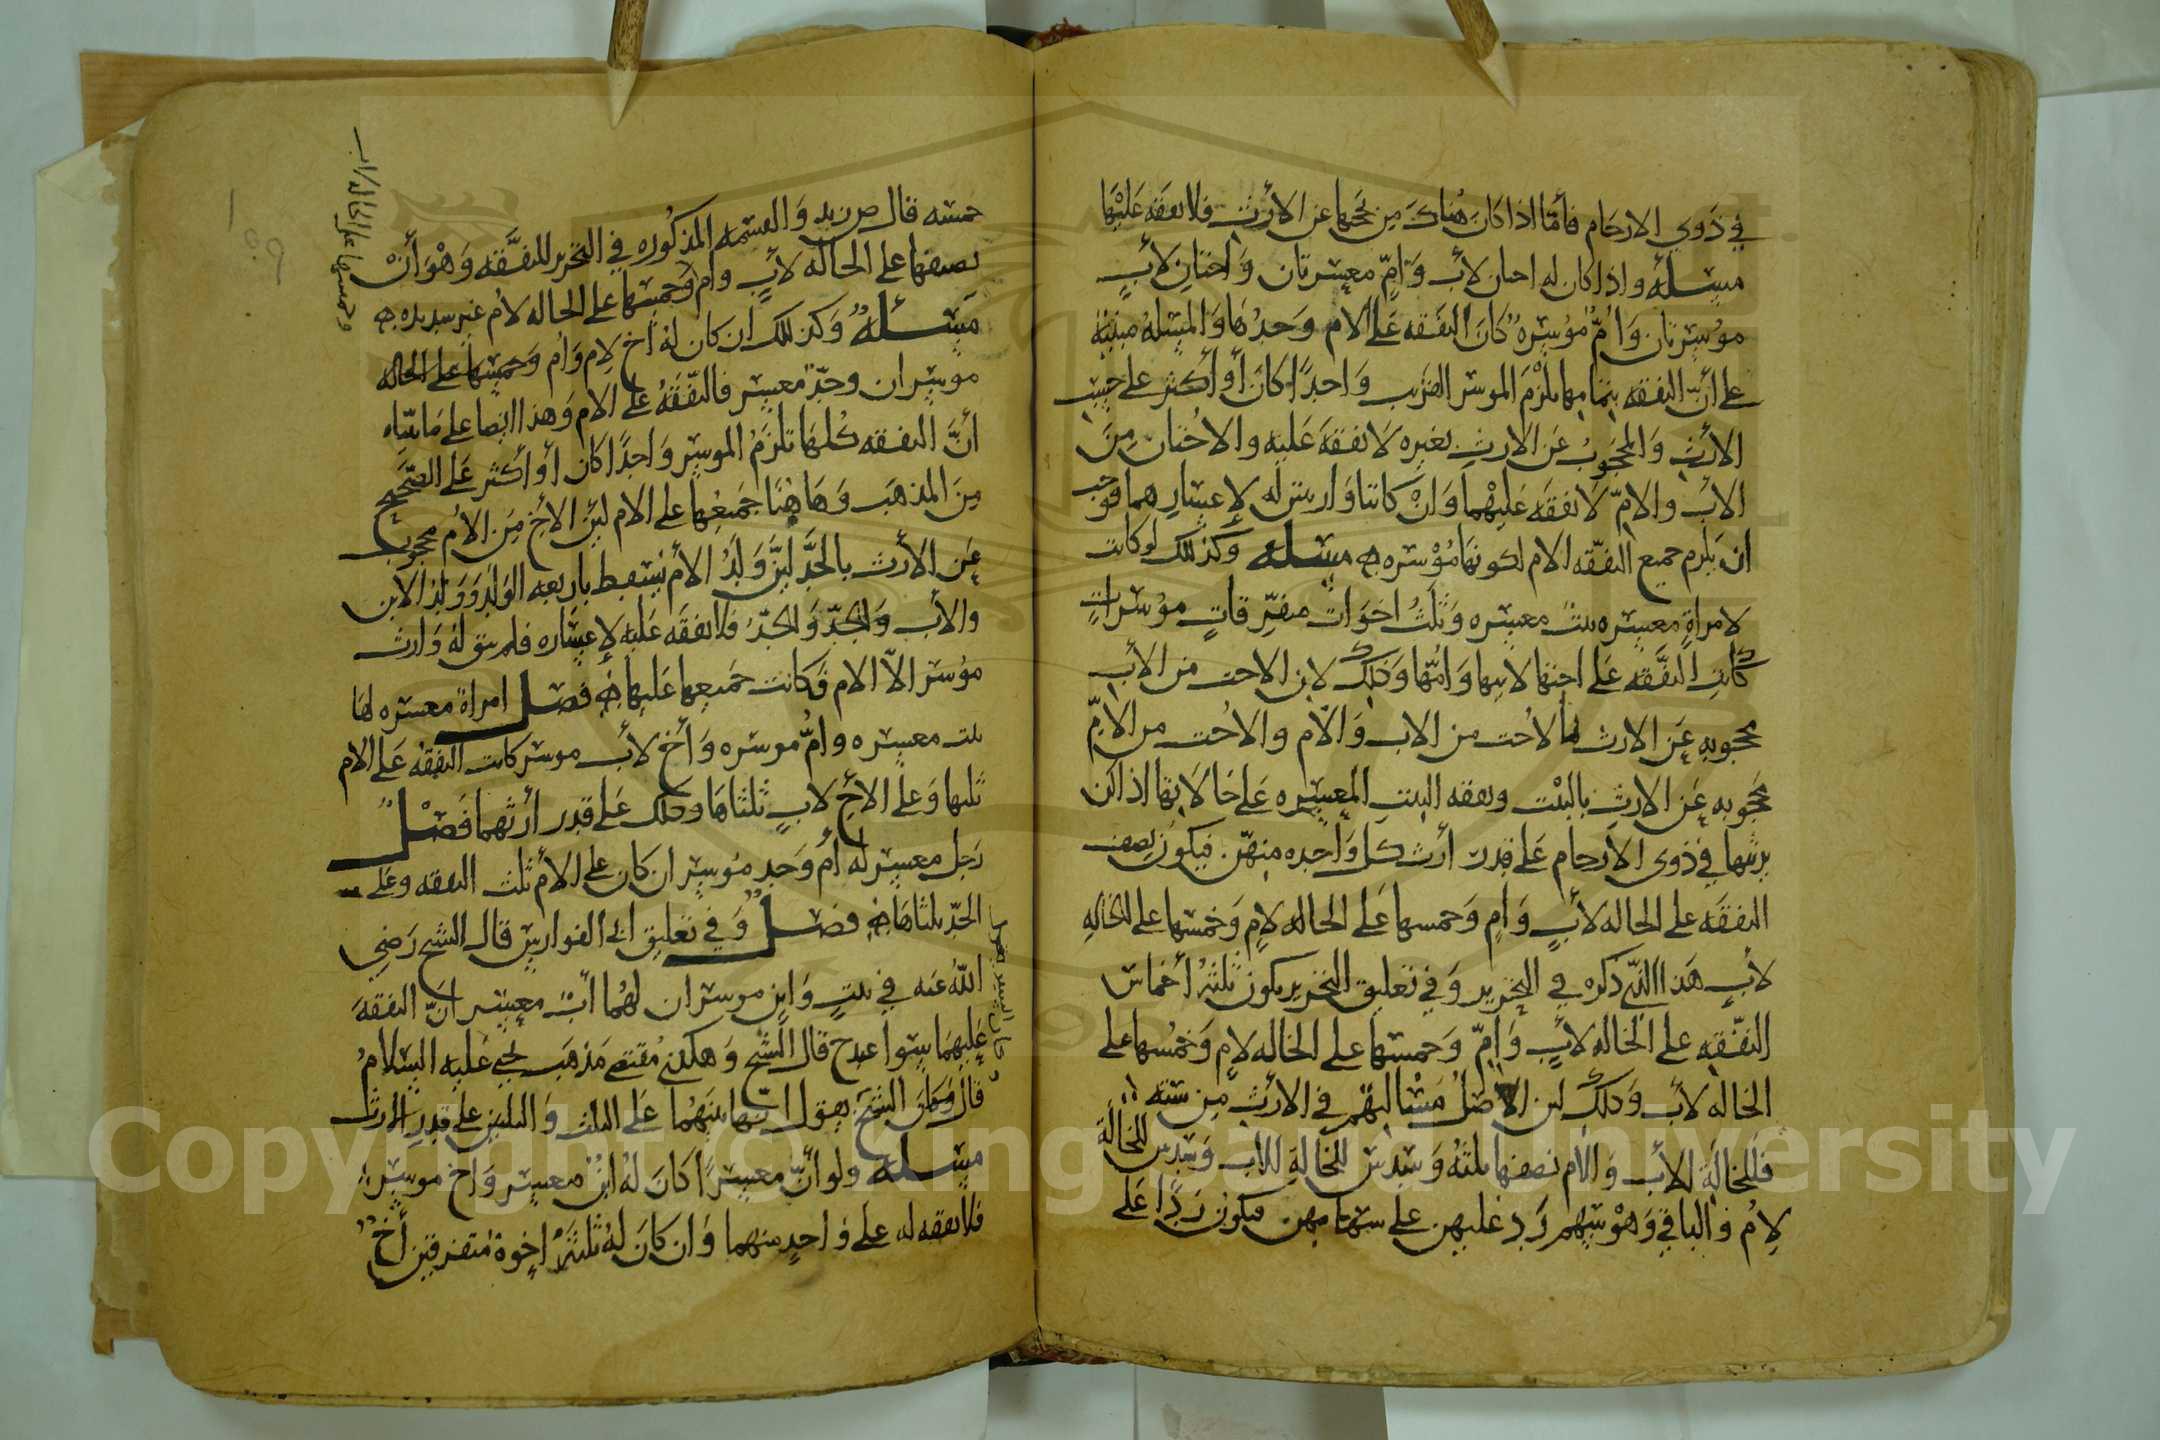 في ذَوي الارحام فأمّا اذا كانَ هناك من يحجبها عن الارث فلا نفقه عَليهَا
مسئلة واذا كان له اختان لأب وَامّ معسرتان وَاختان لأبٍ
موُسرتان وَامّ موُسره كانَ النفقه عَلى الام وَحدهَا وَالمسئله مبنيّة
على انّ النفقه بتمامها تلزم الموسر القريب وَاحدًا كان أو أكثر على حسب
الأرث وَالمحجوب عَن الارث بغيره لا نفقه عَليه والاختان مِن
الأب والامّ لا نفقه عَليهما وَانْ كانتا وَارثتين له لإعسارهما فوجب
ان يلزم جميع النفقه الام لكونها مؤسره مسئله وَكذلك لو كانت
لامراةٍ معسره بنت معسره وَثلثُ اخوَات متفرّقاتٍ موُسراتٍ
كانت النفقه عَلى اختها لابيها وَامّها وَذلك لان الاخت من الأب
محجوبه عَن الارث بالأخت من الاب وَالام والاخت من الامّ
محجوبه عَن الارث بالبنْت ونفقه البنت المعسره عَلى خالاتها اذ اكن
يرثنها في ذوى الأرحام عَلى قدر أرث كل وَاحده منهنّ فيكون نصف
النفقه على الخاله لأبٍ وَامٍ وَخمسها عَلى الخاله لامٍ وَخمسها على الخالهِ
لأبٍ هَذا الّذي ذكره في التحرير وَفي تعليق التحرير يكون ثلثة أخماس
النفقه على الخاله لأبٍ وَامّ وَخمسها على الخاله لامٍ وَخمسها على
الخاله لأب وَذلك لان الاصل مسألتهم في الأرث مِن سته
فللخالة للأب وَالام نصفها ثلثه وَسدس للخالةِ للأب وَسدس للخالَة
لامٍ والباقي وَهوْ سهم رَد عَليهن على سهامهن فيكون رَدًا عَلى
خمسه قال ص زيد وَالقسمه المذكوره في التحرير للنفقه وَهوَ أنْ
نصفها على الخاله لأبٍ وام وَخمسها على الخاله لامٍ غير سديده
وخمسها على الخاله لاب
مَسئلة وَكذلك ان كان لهُ أخ لام وَام وَخمسها على الخاله
موسران وجدّ معسر فالنفقهُ عَلى الام وَهذا ايضا على مَا بيّناه
أنَّ النفقه كلهَا تلزَمُ الموسر وَاحدًا كان أو أكثر عَلى الصّحيح
مِنَ المذهَب وَهَاهُنَا جَميعُها على الام لئن الأخ مِن الأم محجوب
عَن الأرث بالجدّ لئن وَلَدُ الأم يَسقط باربعه الوَلَد وَوَلَد الابن
والأب وَالجَدّ وَالجدّ فلا نفقه عَليه لإعساره فلم يبق له وَارث
مؤسر الاّ الام فكانت جَميعها عَليها فصل امراة معسره لهَا
بنت معسره وامٌّ موسره وَأخ لأب موسر كانت النفقه عَلى الام
ثلثها وَعلى الأخ لابٍ ثلثاهَا وذلك عَلى قدر أرثهما فَصْل
رَجل معسر له أم وَجد موُسران كان على الأم ثلث النفقه وعَلى
الجدّ ثلثاهَا فصل وَفي تعليق ابي الفوارس قال الشيخ رَضي
اللّهُ عَنه في بنتٍ وَابن موسران لهُما أبٌ معسر انّ النفقهَ
عَليهمَا سواء قال الشيخ وَهكذى مُقتضى مَذهَب يحيى عَليه السلامُ
قال وَكان الشيخ يقول انها بينهُما عَلى الثلث وَالثلثين على قدر الارث
وكان السيد يقول
مسئله ولو انّ معسرًا كانَ لهُ ابنٌ معسر وَاخ موسر
فلا نفقه له على وَاحدٍ منهما وَان كان لهُ ثلثة اخوة متفرقين أخ
١٥٩
Copyright © King Saud University